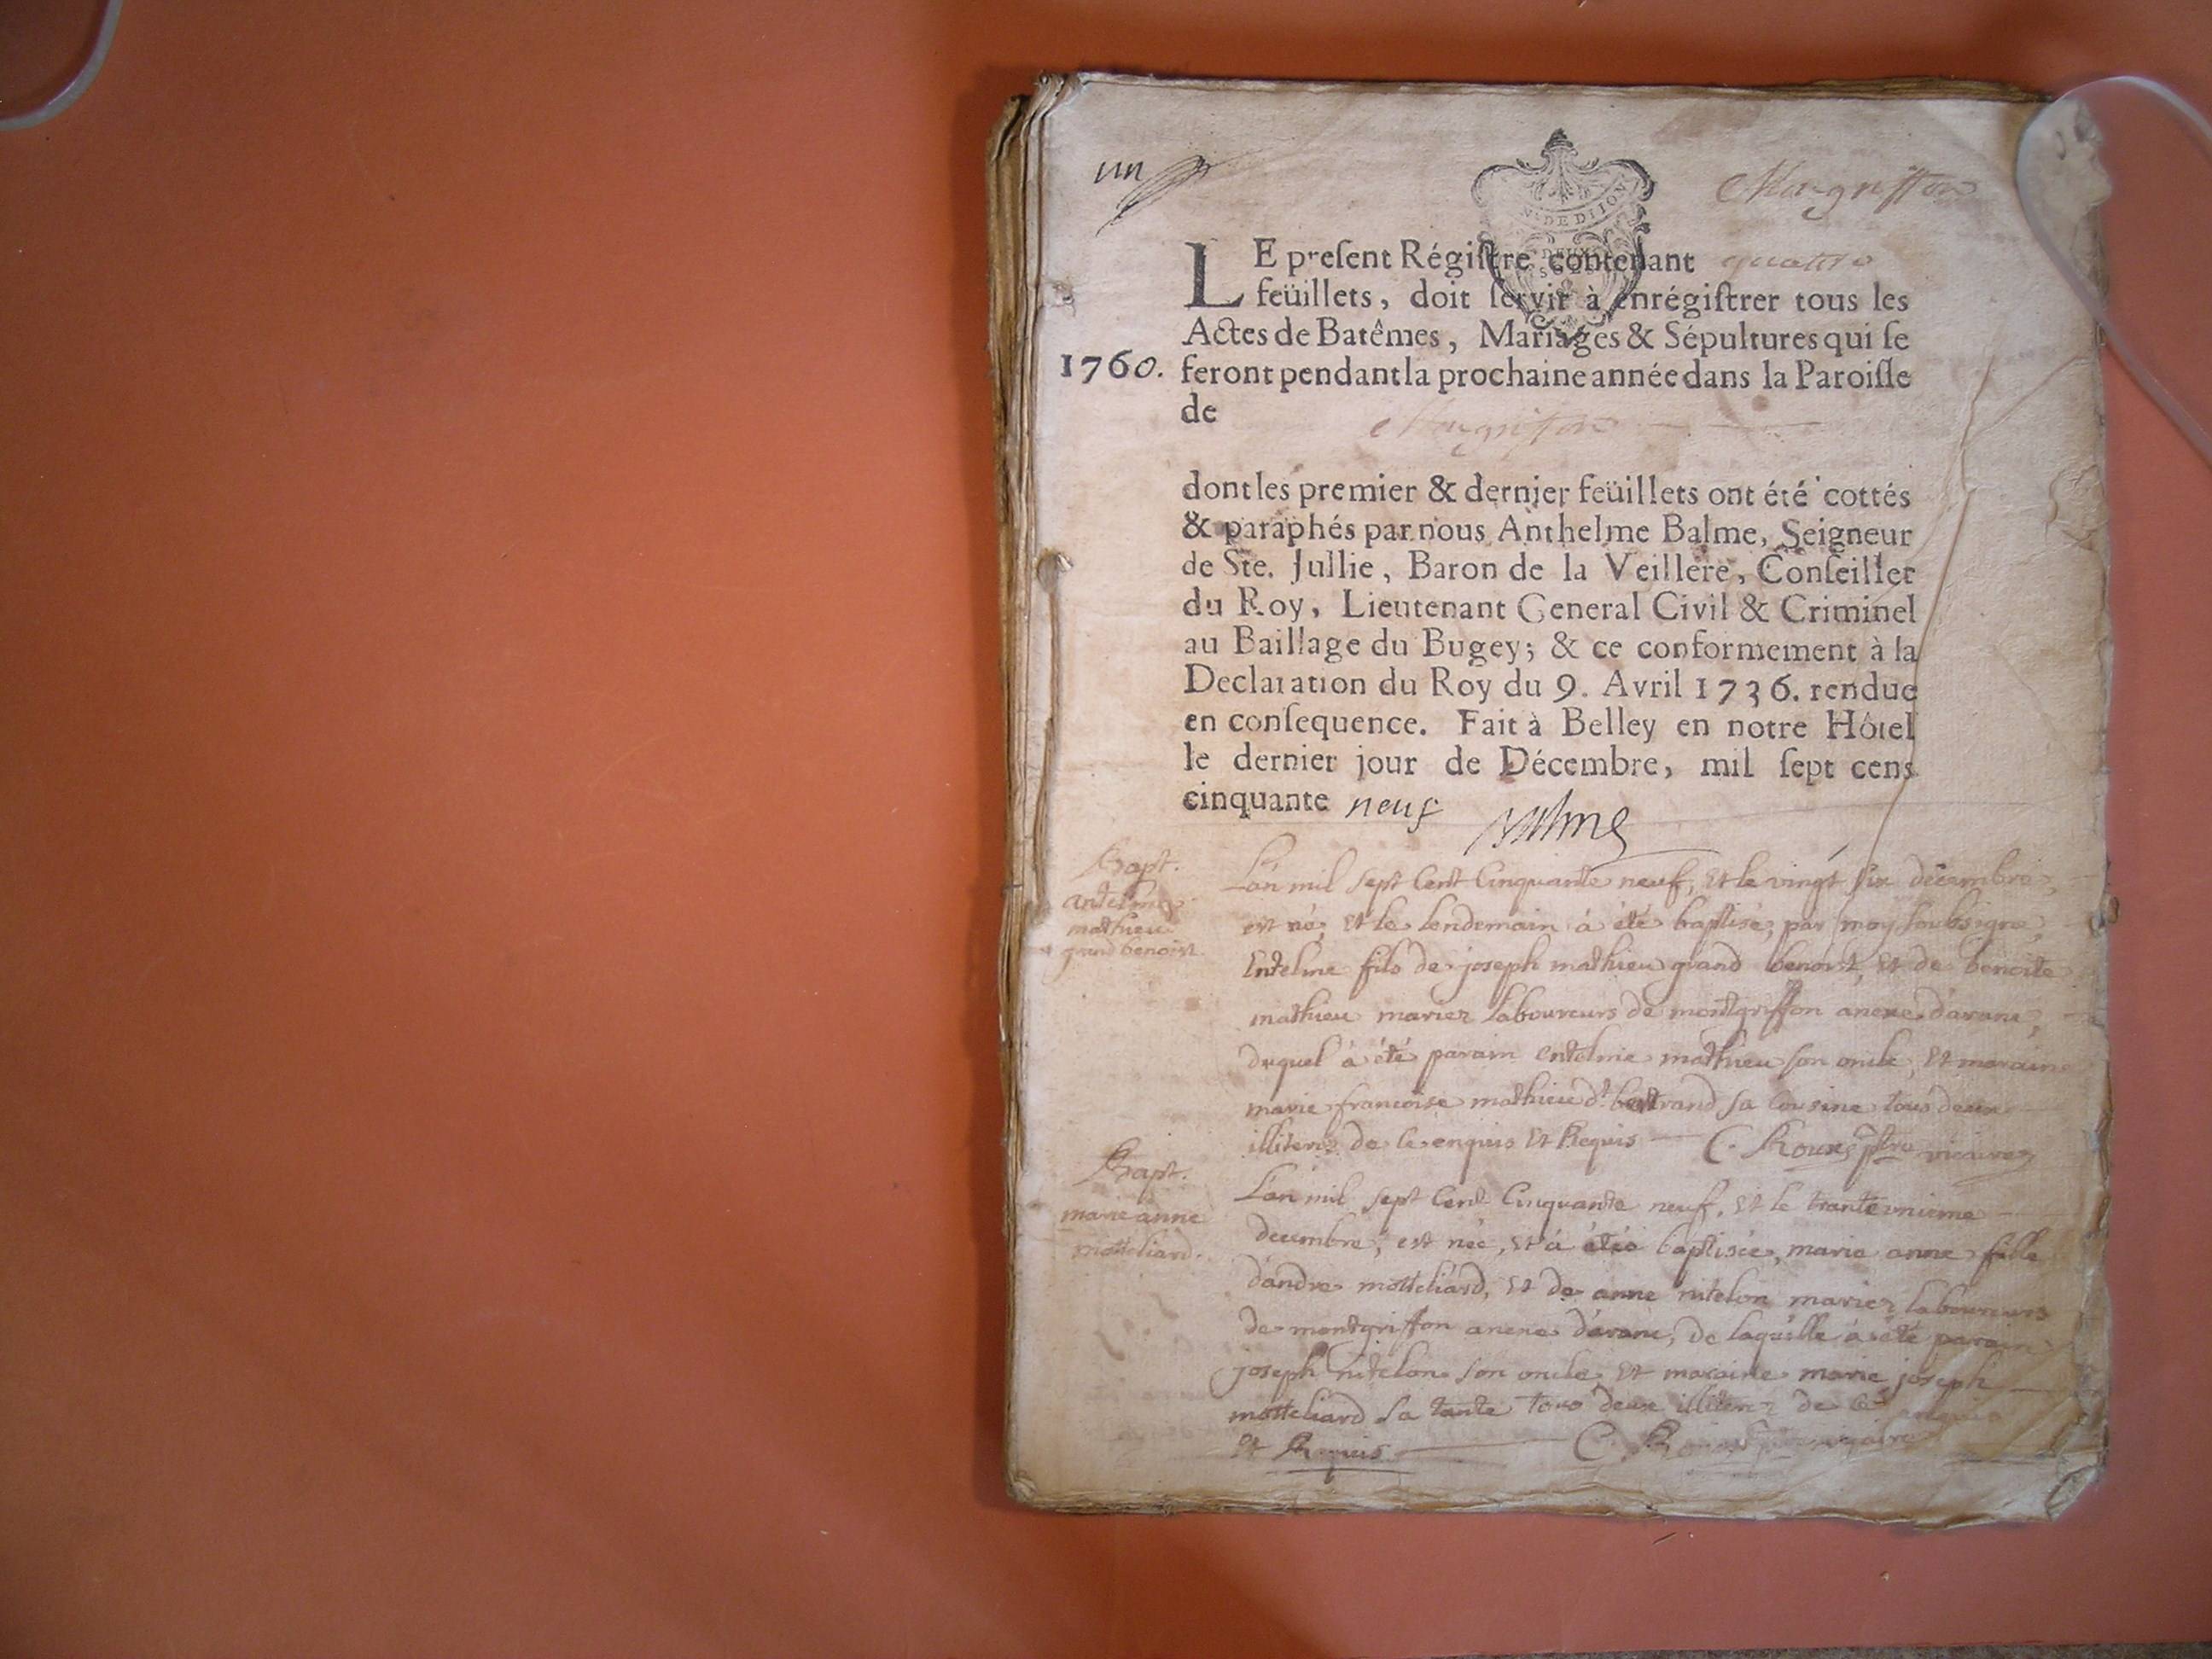 un
Mongriffon
N. DE DIJON
DEUX
SOLS
LE preſent Régiſtre contenant quattre
feüillets, doit ſervir à enrégiſtrer tous les
Actes de Batêmes, Mariages & Sépultures qui ſe
1760. feront pendant la prochaine année dans la Paroiſſe
de
Mongriffon
dont les premier & dernier feüillets ont été cottés
& paraphés par nous Anthelme Balme, Seigneur
de Ste. Jullie, Baron de la Veillere, Conſeiller
du Roy, Lieutenant General Civil & Criminel
au Baillage du Bugey; & ce conformement à la
Declaration du Roy du 9. Avril 1736. rendue
en conſequence. Fait à Belley en notre Hôtel
le dernier jour de Décembre, mil ſept cens
cinquante neuf Balme
Bapt.
antelme
mathieu
grand benoist.
L'an mil sept Cent Cinquante neuf, et le vingt six décembre,
est né, et le lendemain à été baptisé, par moy soubsigné,
Entelme fils de joseph mathieu grand benoist, et de benoite
mathieu mariez laboureurs de montgriffon anexe d'aranc,
duquel à été parain entelme mathieu son oncle, et maraine
marie francoise mathieu dt bertrand sa cousine tous deux
illiterez de ce enquis et Requis C. Roux ptre vicaire
Bapt.
marie anne
motteliard.
L'an mil sept Cent Cinquante neuf, et le trante unieme
decembre, est née, et à étéé baptisée, marie anne fille
d'andre motteliard, et de anne ritelon mariez laboureurs
de montgriffon anexe d'aranc, de laquelle à été parain
joseph ritelon son oncle, et maraine marie joseph
motteliard sa tante tous deux illiterez de ce enquis
et Requis C. Roux ptre vicaire